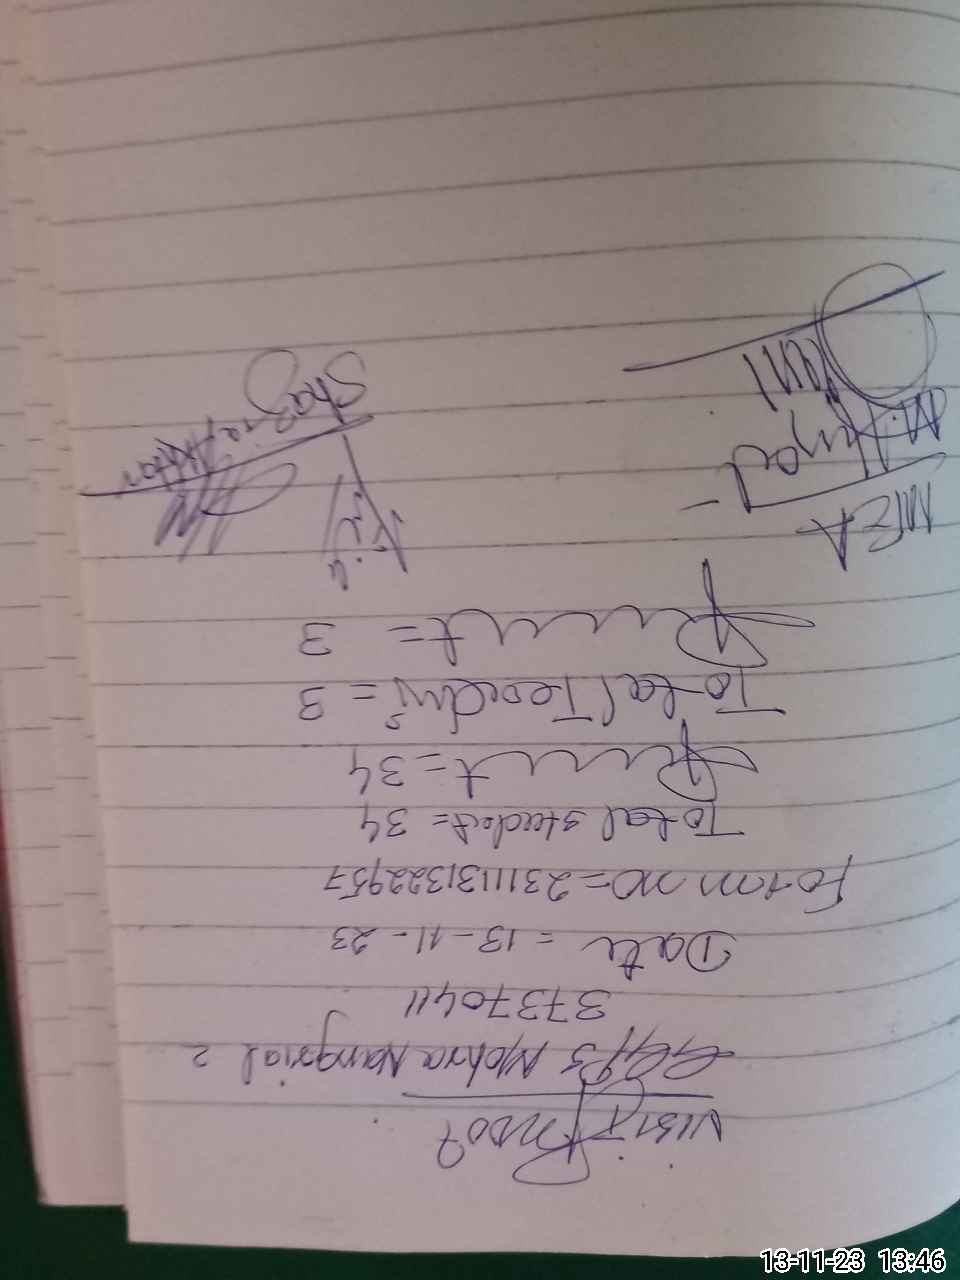 Visit Proof
GGPS Mohra Nangrial 2
37370411
Date = 13-11-23
Form no = 231113132 2957
Total student = 34
Present = 34
Total Teacher = 3
Present = 3
MEA
M. Amjad
Shazia Akhtar
13-11-23 13:46